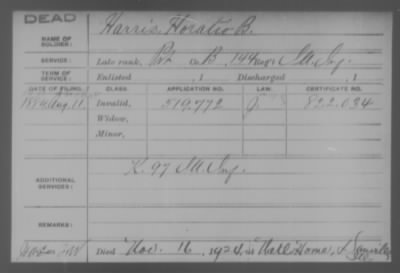 DEAD
NAME OF SOLDIER: Harris, Horatio B.
SERVICE: Late rank, Pvt Co. B, 144 Reg't Ill Inf.
TERM OF SERVICE: Enlisted , 1 Discharged , 1
DATE OF FILING. CLASS. APPLICATION NO. LAW. CERTIFICATE NO.
1884 Aug. 11 Invalid, 519,772 J. 822,034
Widow,
Minor,
ADDITIONAL SERVICES: K. 97 Ill Inf.
REMARKS:
Died Nov. 16, 1924, at Natl Home, Danville Ill